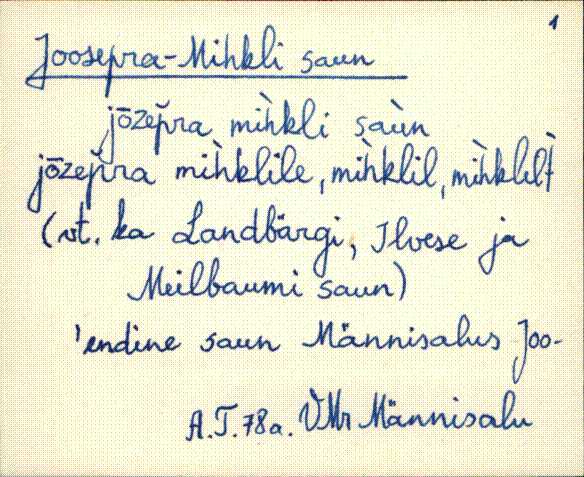 1
Joosepra-Mihkli saun
jōzep̆ra mìhkli saùn
jōzep̆ra mìhklile, mìhklil, mìhklilt
(vt. ka Landbärgi, Ilvese ja
Meilbaumi saun)
'endine saun Männisalus Joo-
A.T. 78a. VMr Männisalu